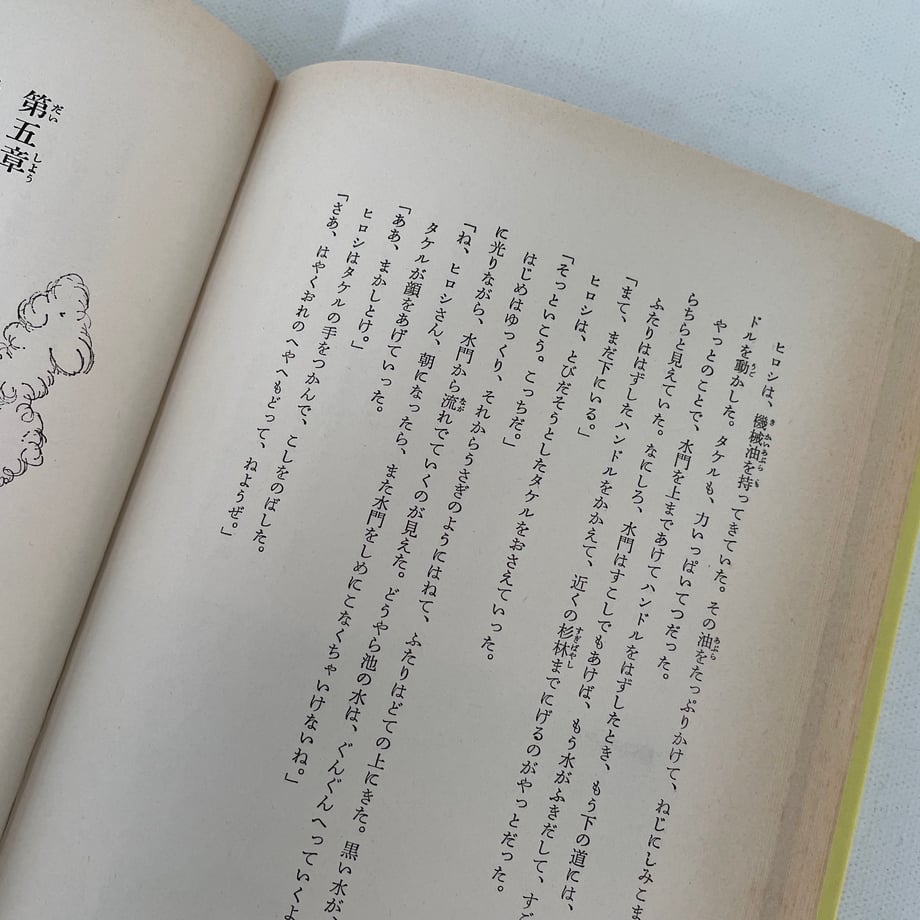 ヒロシは、機械油を持ってきていた。その油をたっぷりかけて、ねじにしみこま
ドルを動かした。タケルも、力いっぱいてつだった。
やっとのことで、水門を上まであけてハンドルをはずしたとき、もう下の道には、
らちらと見えていた。なにしろ、水門はすこしでもあけば、もう水がふきだして、すご
ふたりははずしたハンドルをかかえて、近くの杉林までにげるのがやっとだった。
「まて、まだ下にいる。」
ヒロシは、とびだそうとしたタケルをおさえていった。
「そっといこう。こっちだ。」
はじめはゆっくり、それからうさぎのようにはねて、ふたりはどての上にきた。黒い水が、
に光りながら、水門から流れでていくのが見えた。どうやら池の水は、ぐんぐんへっていくよ
「ね、ヒロシさん、朝になったら、また水門をしめにこなくちゃいけないね。」
タケルが顔をあげていった。
「ああ、まかしとけ。」
ヒロシはタケルの手をつかんで、こしをのばした。
「さあ、はやくおれのへやへもどって、ねようぜ。」
第五章